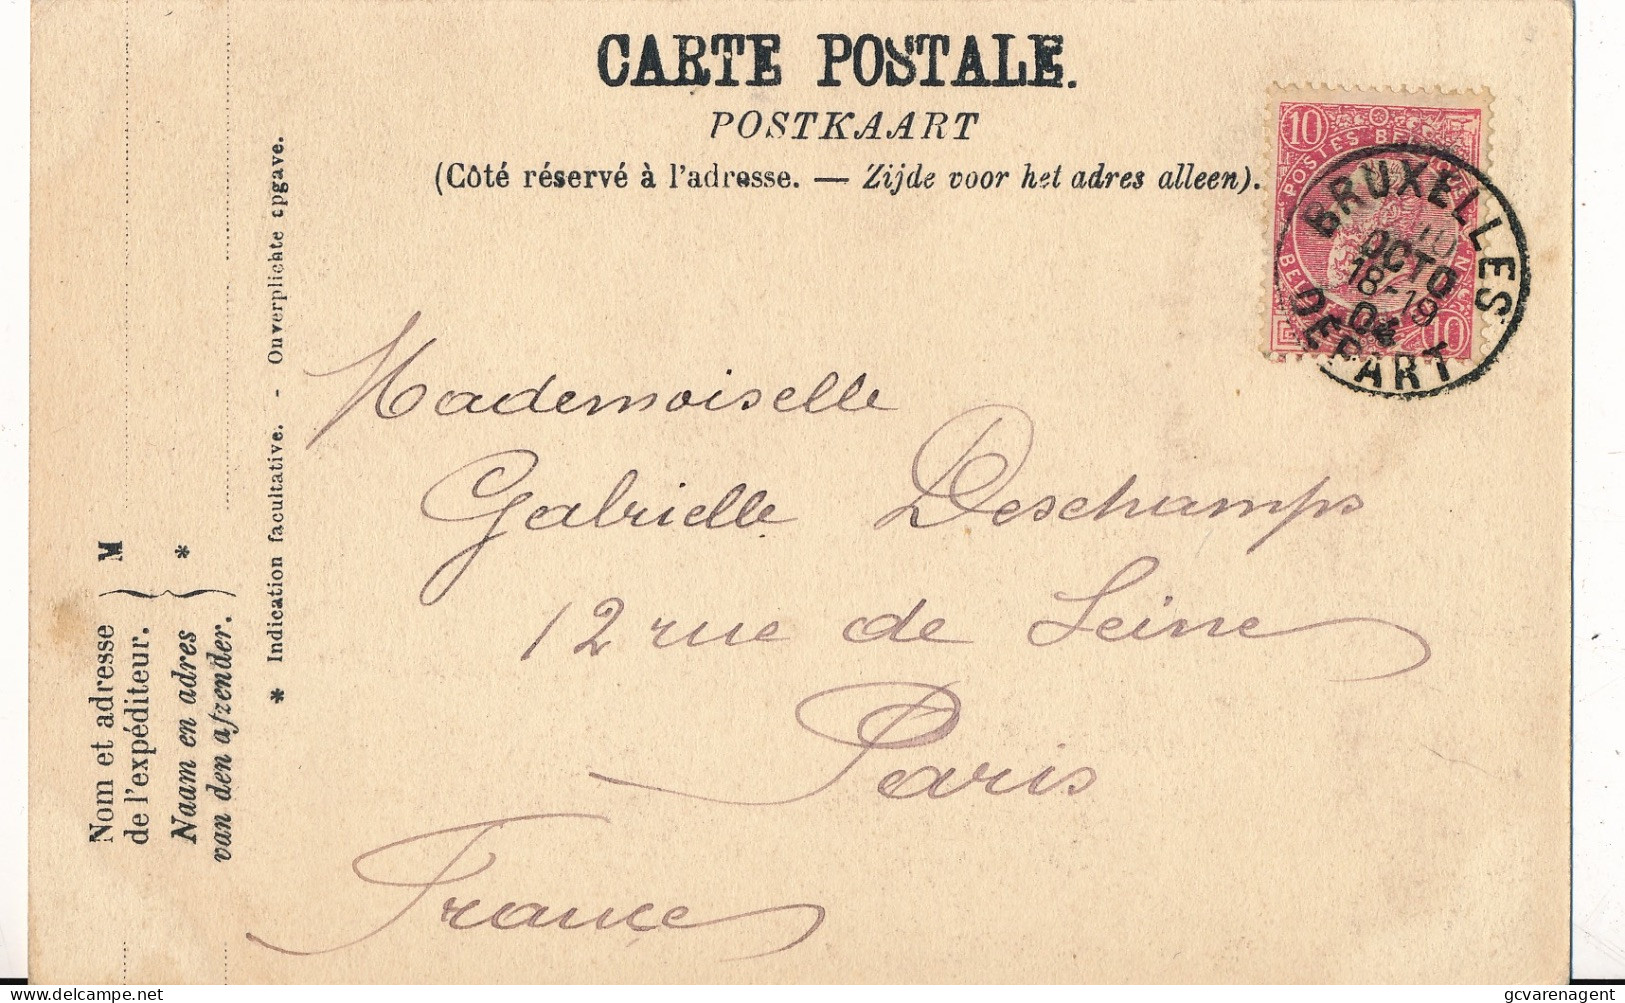 CARTE POSTALE.
POSTKAART
(Côté réservé à l'adresse. — Zijde voor het adres alleen).
10
POSTES
10
BRUXELLES
OCTO
18-19
DEPART
Mademoiselle
Gabrielle Deschamps
12 rue de Seine
Paris
France
Nom et adresse
de l'expéditeur.
M
Naam en adres
van den afzender.
*
* Indication facultative. - Onverplichte opgave.
gcvarenagent
delcampe.net